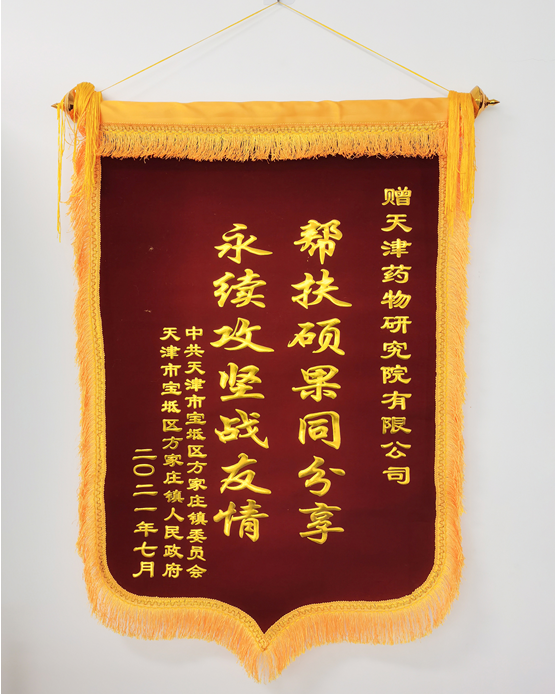 赠天津药物研究院有限公司
帮扶硕果同分享
永续攻坚战友情
中共天津市宝坻区方家庄镇委员会
天津市宝坻区方家庄镇人民政府
二〇二一年七月